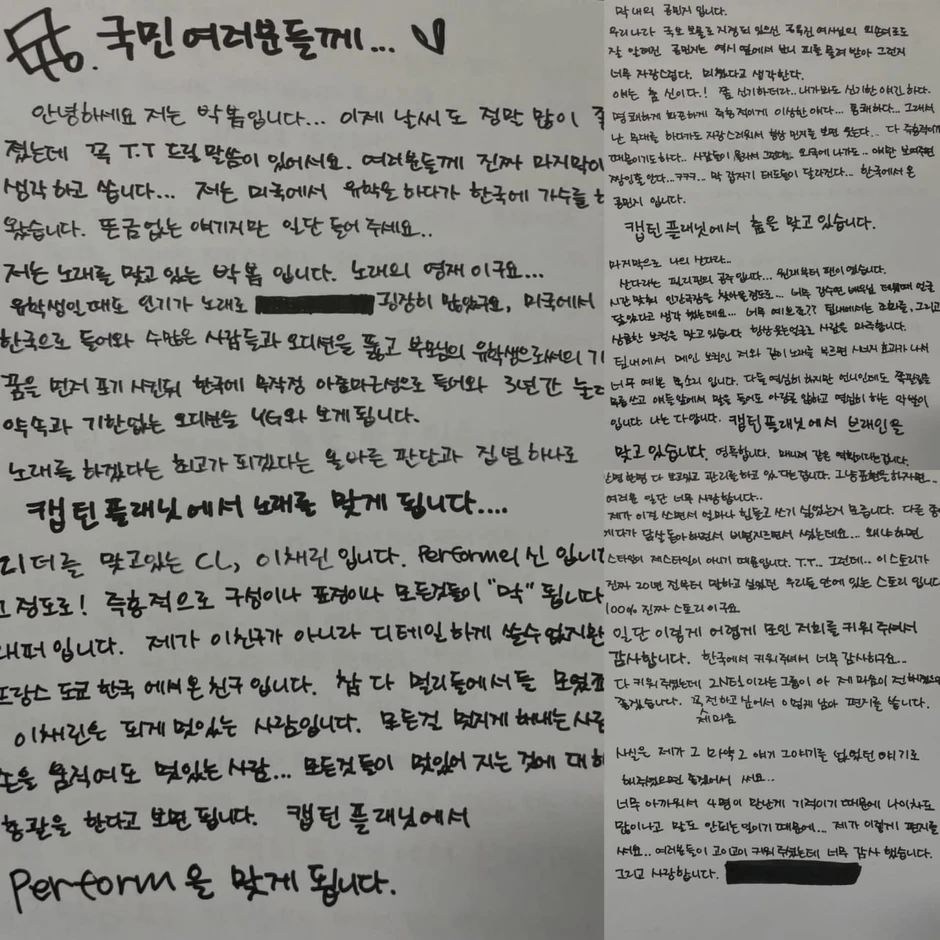 국민여러분들께...
안녕하세요 저는 박봄입니다... 이제 날씨도 정말 많이
졌는데 꼭 T.T 드릴 말씀이 있어서요. 여러분들께 진짜 마지막이
생각하고 씁니다... 저는 미국에서 유학을 하다가 한국에 가수를
왔습니다. 뜬금없는 얘기지만 일단 들어 주세요..
저는 노래를 맞고 있는 박봄 입니다. 노래의 영재이구요...
유학생인때도 인기가 노래로 굉장히 많았구요, 미국에서
한국으로 들어와 수많은 사람들과 오디션을 뚫고 부모님의 유학생으로써의
꿈을 먼저 포기 시킨뒤 한국에 무작정 아줌마근성으로 들어와 3년간
약속과 기한없는 오디션을 YG와 보게됩니다.
노래를 하겠다는 최고가 되겠다는 올바른 판단과 집념 하나로
캡틴플래닛에서 노래를 맞게 됩니다....
리더를 맞고있는 CL, 이채린입니다. Perform의 신 입니
정도로! 즉흥적으로 구성이나 표정이나 모든것들이 "딱" 됩니다
래퍼입니다. 제가 이친구가 아니라 디테일하게 쓸수없지만
프랑스 도쿄 한국 에서 온 친구입니다. 참 다 멀리들에서들 모였
이채린은 되게 멋있는 사람입니다. 모든걸 멋지게 해내는사람
손을 움직여도 멋있는 사람... 모든것들이 멋있어 지는 것에 대
총괄을 한다고 보면 됩니다. 캡틴플래닛에서
Perform을 맞게 됩니다.
막내의 공민지 입니다.
우리나라 국보 보물로 지정되 있으신 공옥진 여사님의 외손녀로도
잘 알려진 공민지는 역시 옆에서 보니 피를 물려 받아 그런지
너무 자랑스럽다. 미쳤다고 생각한다.
얘는 춤 신이다.! 좀 신기하더라.. 내가봐도 신기한 얘긴 하다.
명쾌하게 화끈하게 즉흥적이게 이상한 얘다... 통쾌하다... 그래서
난 무대를 하다가도 자랑스러워서 항상 먼저를 보면 웃는다.. 다 즉흥적이기
때문이기도하다.. 사람들이 몰라서 그런데.. 외국에 나가도.. 얘만 보여주면
짱인줄 안다...ㅋㅋㅋ... 막 갑자기 태도들이 달라진다... 한국에서 온
공민지 입니다.
캡틴플래닛에서 춤을 맞고 있습니다.
마지막으로 나의 산다라..
산다라는 필리핀의 공주입니다... 원래부터 팬이였습니다.
시간 맞춰 인간극장을 찾아볼정도로... 너무 강수연 배우님 데뷔때 얼굴
닮았다고 생각 했는데요... 너무 예쁘죠?? 팀내에서는 조화를, 그리고
상큼한 보컬을 맞고 있습니다 항상 웃는얼굴로 사람을 마주합니다.
팀내에서 메인 보컬인 저와 같이 노래를 부르면 시너지 효과가 나서
너무 예쁜 목소리 입니다. 다들 열심히 하지만 언니인데도
무릅쓰고 얘들앞에서 많을 들어도 아랑곳 않하고 열심히 하는
입니다 나는 다압니다. 캡틴플래닛에서 브레인을
맞고 있습니다. 영특합니다. 매니져 같은 역할이라는겁니다.
한명 다 보고있고 관리를 하고 있다는겁니다. 그냥 표현을 하자면...
여러분 일단 너무 사랑합니다..
제가 이걸 쓰면서 얼마나 힘들고 쓰기 싫었는지 모릅니다. 다른
게다가 닭살 돋아하면서 비명지르면서 썼는데요... 왜냐하면
스타일이 제스타일이 아니기 때문입니다. T.T.. 그런데.. 이스토리가
진짜 20년 전부터 말하고 싶었던 우리들 안에 있는 스토리 입니다
100% 진짜 스토리이구요
일단 이렇게 어렵게 모인 저희를 키워 주셔서
감사합니다. 한국에서 키워주셔서 너무 감사하구요..
다 키워주셨는데 2NE1이라는 그룹이 아 제 마음이 전해졌으면
좋겠습니다. 꼭 전하고 싶어서 이렇게 남아 편지를 씁니다.
제마음
사실은 제가 그 마약 그 얘기 그얘기를 없었던 얘기로
해주셨으면 좋겠어서 써요..
너무 아까워서 4명이 만난게 기적이기 때문에 나이차도
많이나고 말도 안되는 일이기 때문에... 제가 이렇게 편지를
써요.. 여러분들이 고이고이 키워 주셨는데 너무 감사 했습니다.
그리고 사랑합니다.